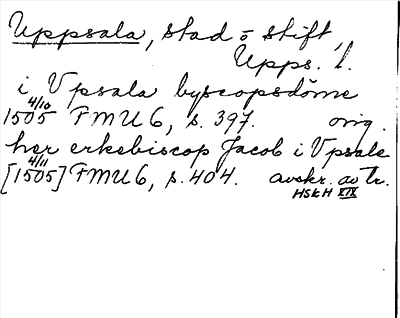 Uppsala, stad o stift,
Upps. l.
i Vpsala byscopsdöme
4/10
1505 FMU 6, s. 397. orig.
her erkebiscop Jacob i Vpsala
4/11
[1505] FMU 6, s. 404. avskr. av tr.
HSkH XIX